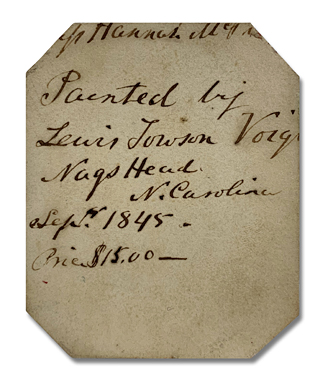 Hannah
Painted by
Lewis Towson Voig
Nags Head
N. Carolina
Sepr. 1845.
Price $15.00—